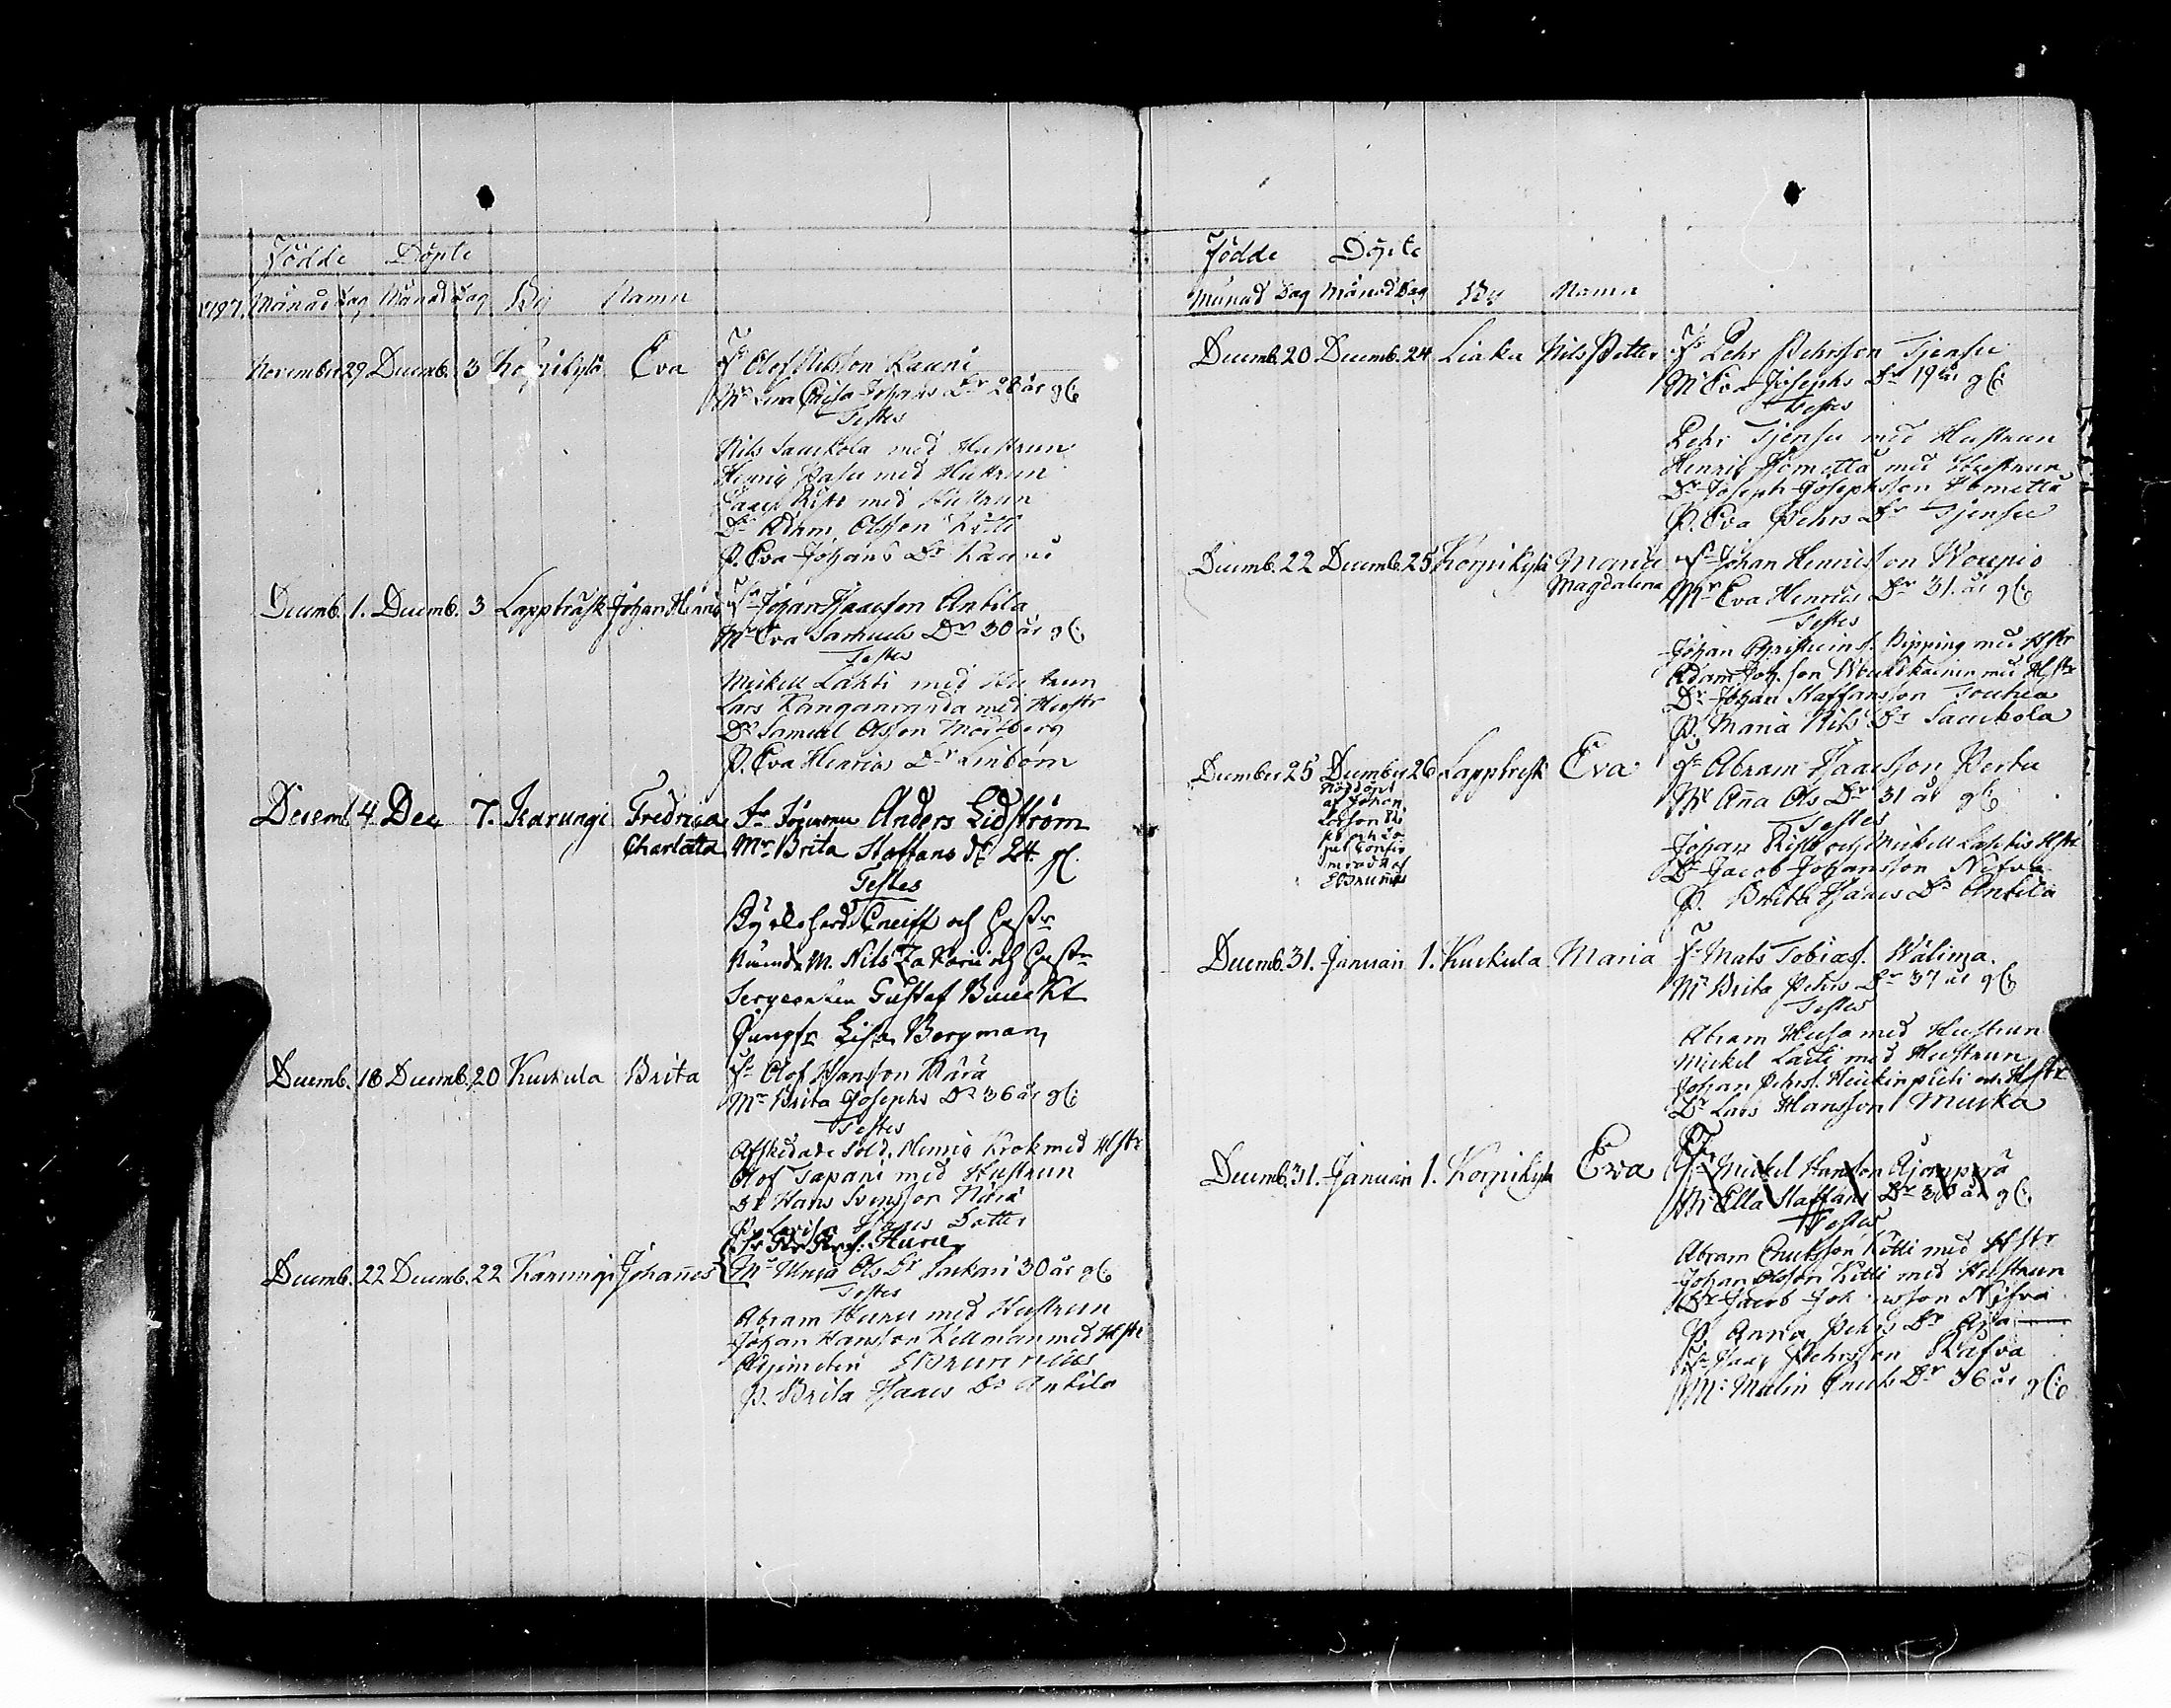 Födde Döpte
1797. Månad Dag Månad Dag By Namn
November 29 Decemb. 3 Korpikylä Eva Fr Olof Nilsson Kauni
Mr Lisa Johans Dr 28 år gl:
Testes
Nils Lauckola med Hustrun
Henric Pasu med Hustrun
Risti med Hustrun
Dr Adam Olsson Kitti
P. Eva Johans Dr Kauni
Decemb. 1. Decemb. 3 Lappträsk Johan Henric Fr Johan Isaacsson Antila
Mr Eva Samuels Dr 30 år gl:
Testes
Mickell Lahti med Hustrun
Lars Kanganranda med Hustr
Dr Samuel Olsson Mortberg
P. Eva Henrics Dr Linbom
Decemb 4 Dec 7. Karungi Fredrica Fr Anders Lidström
Charlotta Mr Brita Staffans dr 24. gl.
Testes
Kyrkoherd. Cneiff och Hustr
Nämnde M. Nils Zakari och Hustr
Sergeanten Gustaf Burckt
Jungfr Lisa Bergman
Decemb. 18 Decemb. 20 Kuckula Brita Fr Olof Hansson Nära
Mr Brita Josephs Dr 36 år gl:
Testes
Afskedade Sold. Henric Krok med Hstr
Olof Tapani med Hustrun
Dr Hans Svensson Nära
P. Lovisa Dotter
Huru
Decemb. 22 Decemb. 22 Karungi Johannes Mr Ols Dr Lackari 30 år gl:
Testes
Abram Huru med Hustrun
Johan Hansson Kellman med Hstr
Adjuncten Ekorunnius
P. Brita Isaacs Dr Antila
Födde Döpte
Månad Dag Månad Dag By Namn
Decemb. 20 Decemb. 24 Liaka Nils Petter Fr Pehr Pehrsson Tjensu
Mr Eva Josephs Dr 19 år gl:
Testes
Pehr Tjensu med Hustrun
Henric Hometta med Hustrun
Dr Joseph Josephsson Hometta
P. Eva Pehrs Dr Tjensu
Decemb. 22 Decemb. 25 Korpikylä Maria Fr Johan Henricsson Woupio
Magdalena Mr Eva Henrics Dr 31. år gl:
Testes
Johan Pipping med Hstr
Adam Joh.son med Hstr
Dr Johan Staffansson
P. Maria Nils Dr Lauckola
December 25 December 26 Lappträsk Eva Fr Abram Isaacsson Pertu
Nöddöpt Mr Anna Ols Dr 31 år gl:
af Johan Testes
Johan Risto och Mickell Lahtis Hstr
Dr Jacob Johansson Nifva
P. Brita Isaacs Dr Antila
Decemb. 31. Januari 1. Kuckula Maria Fr Mats Tobiass. Wälima.
Mr Brita Pehrs Dr 37 år gl:
Testes
Abram Husa med Hustrun
Mickel Lasti med Hustrun
Johan Pehrs. och Hstr
Dr Lars Hansson Mucka
Decemb. 31. Januari 1. Korpikylä Eva Fr Mickel Hansson
Mr Ella Staffans Dr 30 år gl:
Testes
Abram Ericksson Kitti med Hstr
Johan Olsson Kitti med Hustrun
Dr Jacob Johansson Nifva
P. Anna Pehrs Dr
Fr Isac Pehrsson Rafva
Mr Malin Erichs Dr 36 år gl: